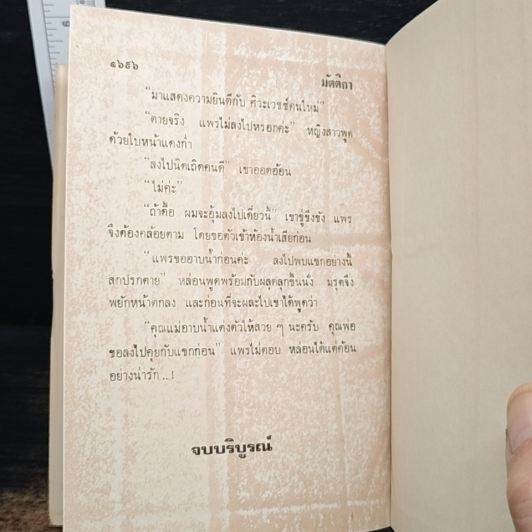 ๑๖๕๖
มัตติกา
"มาแสดงความยินดีกับ ศิวะเวชช์คนใหม่"
"ตายจริง แพรไม่ลงไปหรอกค่ะ" หญิงสาวพูด
ด้วยใบหน้าแดงก่ำ
"ลงไปนิดเถิดคนดี" เขาออดอ้อน
"ไม่ค่ะ"
"ถ้าดื้อ ผมจะอุ้มลงไปเดี๋ยวนี้" เขาขู่ขึงขัง แพร
จึงต้องคล้อยตาม โดยขอตัวเข้าห้องน้ำเสียก่อน
"แพรขออาบน้ำก่อนค่ะ ลงไปพบแขกอย่างนี้
สกปรกตาย" หล่อนพูดพร้อมกับผุดลุกขึ้นนั่ง มรุตจึง
พยักหน้าตกลง และก่อนที่จะผละไปเขาได้พูดว่า
"คุณแม่อาบน้ำแต่งตัวให้สวย ๆ นะครับ คุณพ่อ
ขอลงไปคุยกับแขกก่อน" แพรไม่ตอบ หล่อนได้แต่ค้อน
อย่างน่ารัก...!
จบบริบูรณ์